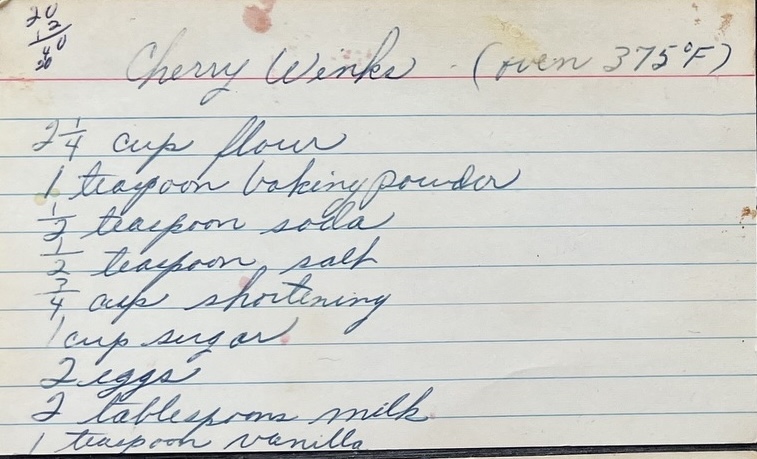 20
12
40
20
Cherry Winks - (oven 375°F)
2 1/4 cup flour
1 teaspoon baking powder
1/2 teaspoon soda
1/2 teaspoon salt
3/4 cup shortening
1 cup sugar
2 eggs
2 tablespoons milk
1 teaspoon vanilla